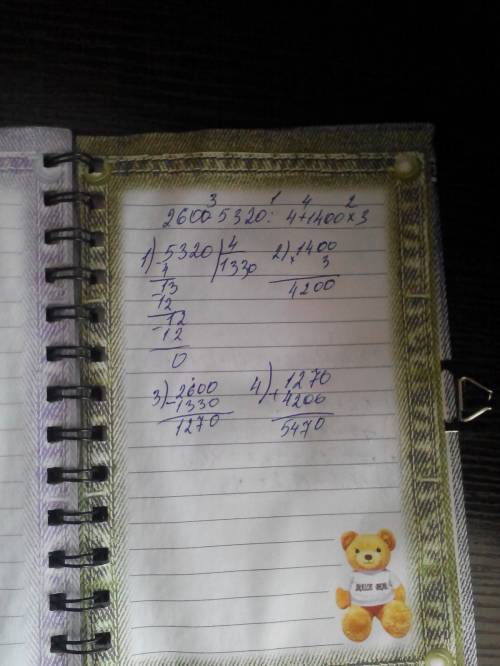 3 1 4 2
2600-5320:4+1400×3
1) 5320 | 4 2) 1400
- 4 1330 × 3
13 4200
12
- 12
12
0
3) 2600 4) 1270
- 1330 + 4200
1270 5470